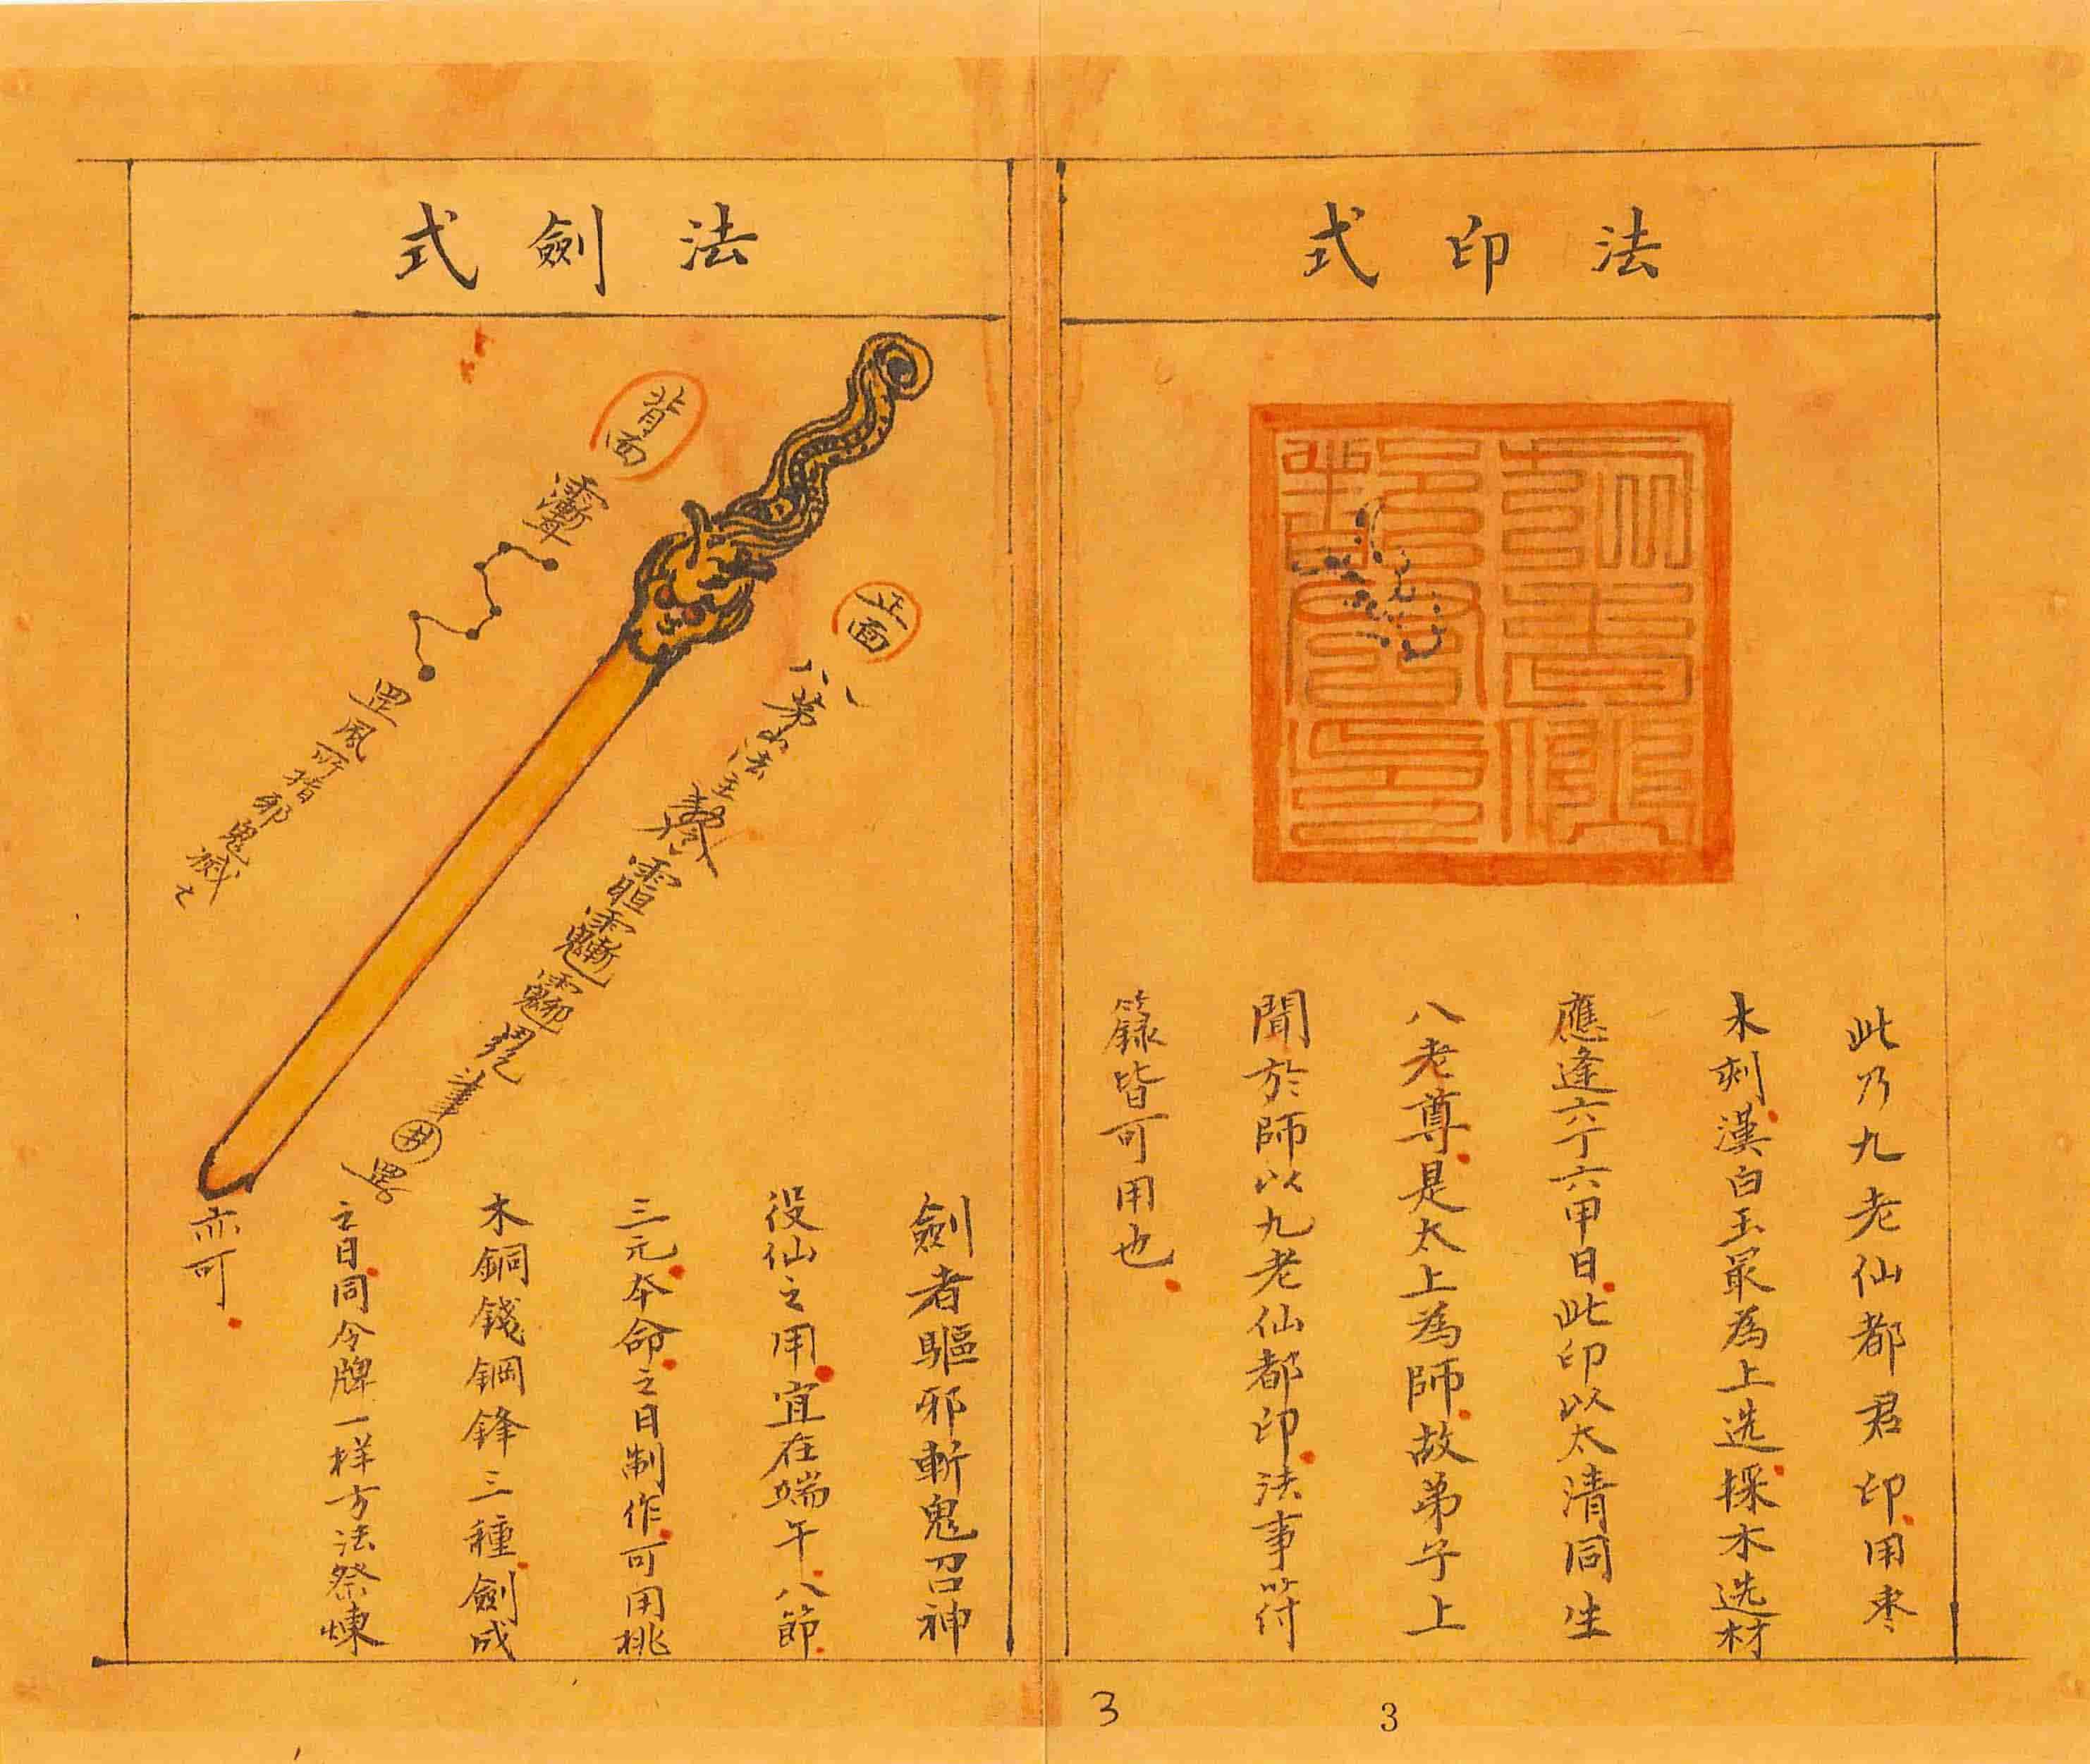 法印式
此乃九老仙都君印用枣
木刻漢白玉最為上选採木选材
應逢六丁六甲日此印以太清同生
八老尊是太上為師故弟子上
聞於師以九老仙都印法事符
籙皆可用也
法劍式
正面
背面
罡風所指邪鬼滅之
劍者驅邪斬鬼召神
役仙之用宜在端午八節
三元本命之日制作可用桃
木銅錢鋼鋒三種劍成
之日同令牌一样方法祭煉
亦可
3
3